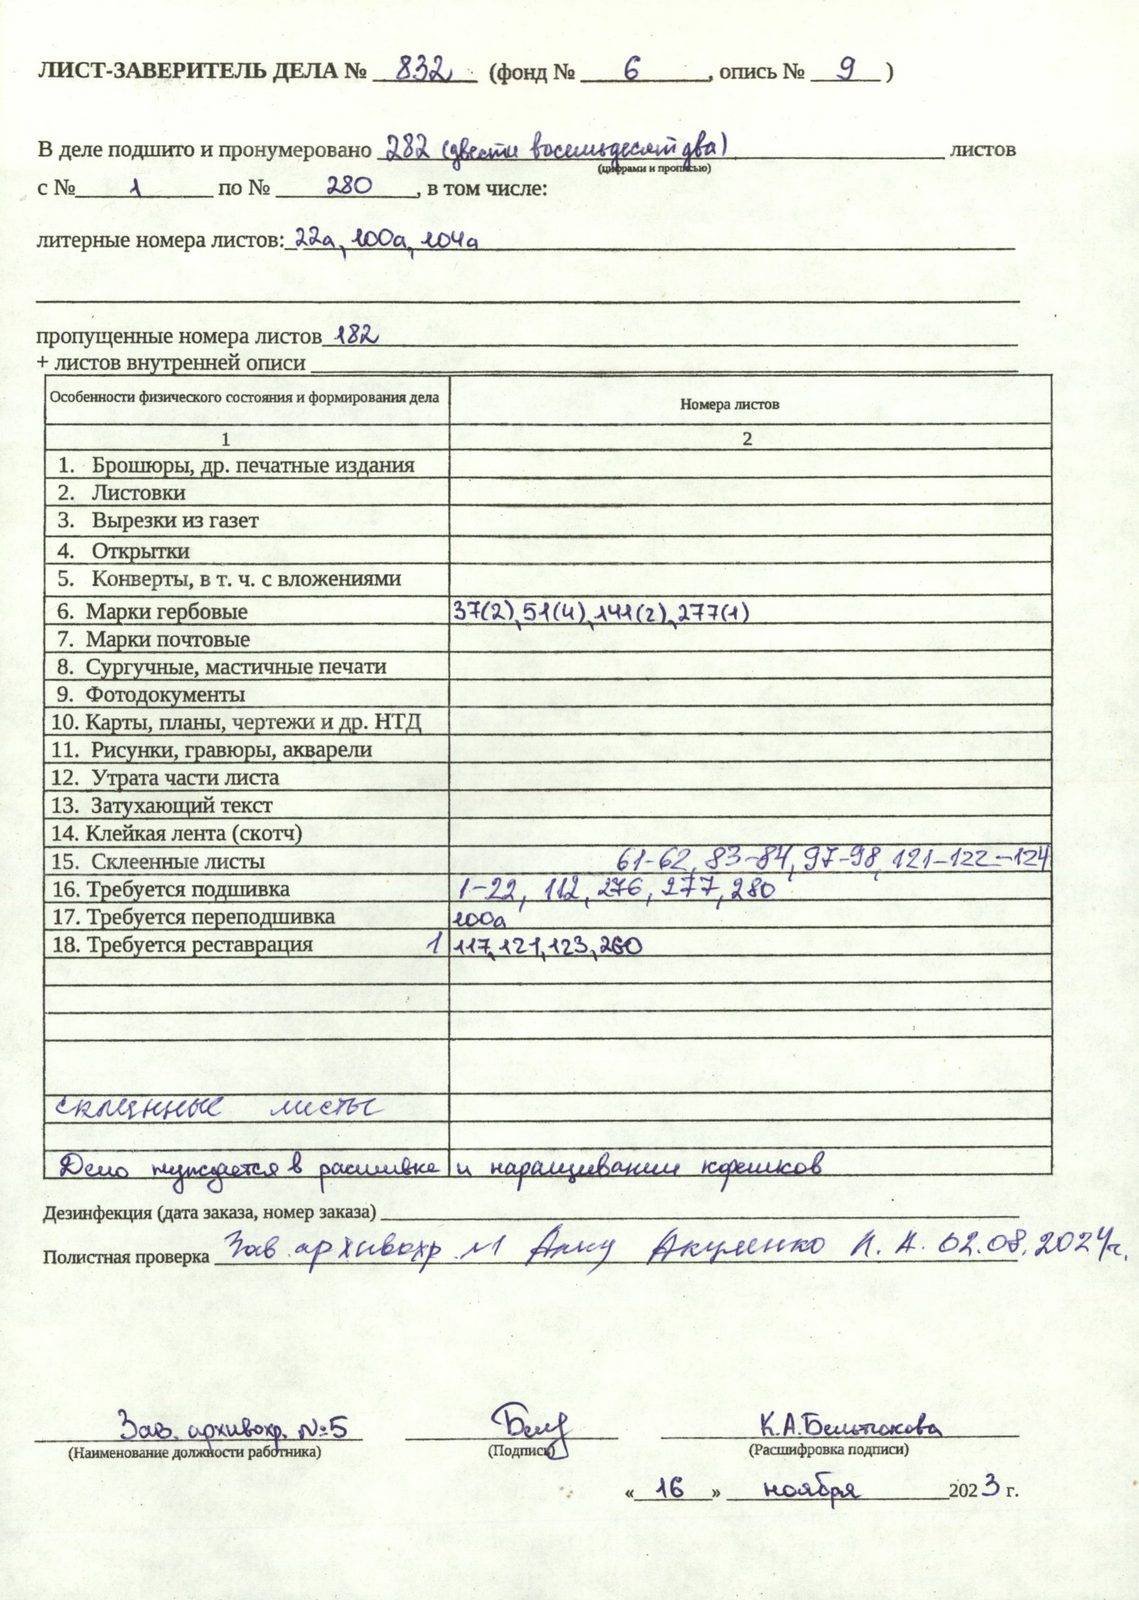 ЛИСТ-ЗАВЕРИТЕЛЬ ДЕЛА № 832 (фонд № 6, опись № 9)
В деле подшито и пронумеровано 282 (двести восемьдесят два) листов
(цифрами и прописью)
с № 1 по № 280, в том числе:
литерные номера листов: 22а, 100а, 104а
пропущенные номера листов 182
+ листов внутренней описи
Особенности физического состояния и формирования дела Номера листов
1 2
1. Брошюры, др. печатные издания
2. Листовки
3. Вырезки из газет
4. Открытки
5. Конверты, в т. ч. с вложениями
6. Марки гербовые 37(2), 51(4), 141(2), 277(1)
7. Марки почтовые
8. Сургучные, мастичные печати
9. Фотодокументы
10. Карты, планы, чертежи и др. НТД
11. Рисунки, гравюры, акварели
12. Утрата части листа
13. Затухающий текст
14. Клейкая лента (скотч)
15. Склеенные листы 61-62, 83-84, 97-98, 121-122-124
16. Требуется подшивка 1-22, 112, 276, 277, 280
17. Требуется переподшивка 100а
18. Требуется реставрация 1 117, 121, 123, 260
склеенные листы
Дело нуждается в расшивке и наращивании корешков
Дезинфекция (дата заказа, номер заказа)
Полистная проверка Зав. архивохр. №1 Акуленко 02.08.2024г.
Зав. архивохр. №5 К.А.Бельтюкова
(Наименование должности работника) (Подпись) (Расшифровка подписи)
«16» ноября 2023 г.